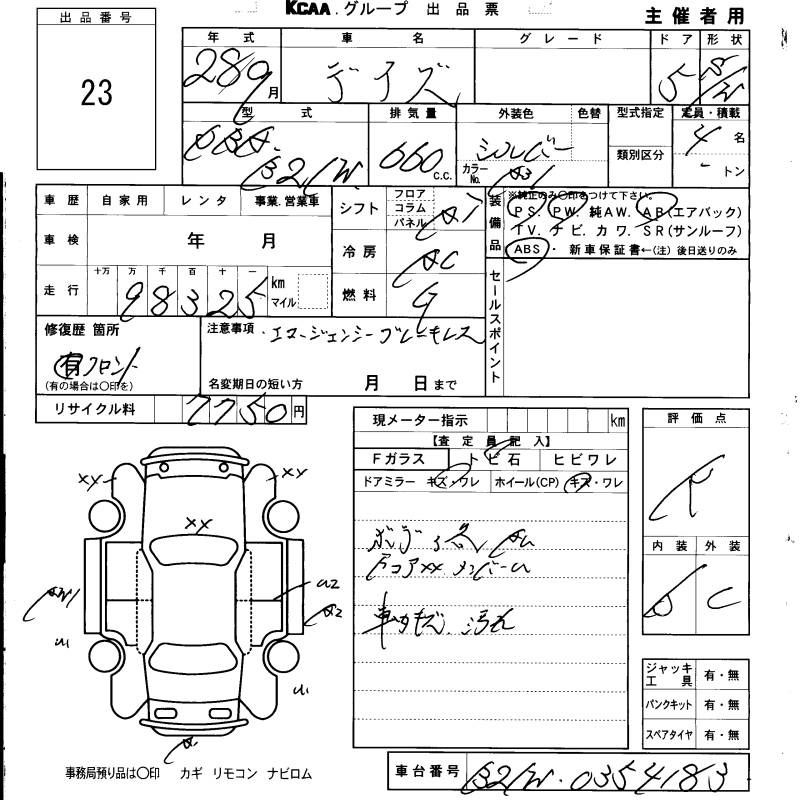 KCAA.グループ 出品票
主催者用
出品番号
23
年式 車名 グレード ドア 形状
28 9月 デイズ 5 S/W
型式 排気量 外装色 色替 型式指定 定員・積載
DBA. B21W. 660 c.c. シルバー カラーNo. 類別区分 4名
- トン
車歴 自家用 レンタ 事業.営業車
車検 年 月
走行 十万 万 千 百 十 一
98325 km マイル
シフト フロア コラム パネル
冷房 AC
燃料 G
装備品 ※純正のみ〇印をつけて下さい。
PS. PW. 純AW. AB(エアバック)
TV. ナビ. カワ. SR(サンルーフ)
ABS・ 新車保証書←(注)後日送りのみ
セールスポイント
修復歴 箇所
有 フロント
(有の場合は〇印を)
注意事項 ・エマージェンシーブレーキレス
名変期日の短い方 月 日まで
リサイクル料 7750円
現メーター指示 km
【査定員記入】
Fガラス トビ石 ヒビワレ
ドアミラー キズ・ワレ ホイール(CP) キズ・ワレ
コアxx メンバーU
汚れ
評価点
R
内装 外装
D C
ジャッキ工具 有・無
パンクキット 有・無
スペアタイヤ 有・無
xx xx
xx
U2
A2
事務局預り品は〇印 カギ リモコン ナビロム
車台番号 B21W-0354183